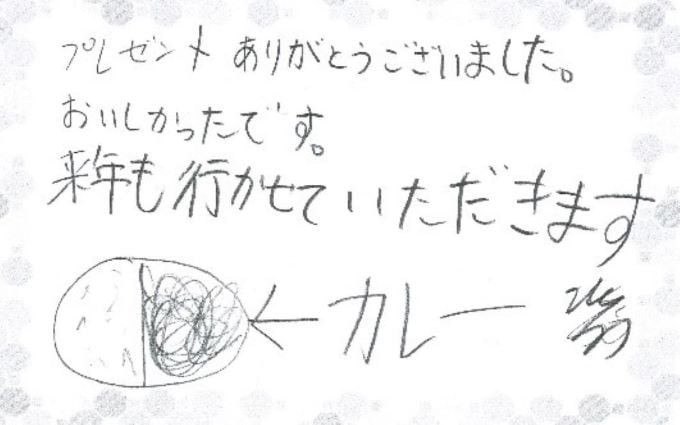 プレゼント ありがとうございました。
おいしかったです。
来年も行かせていただきます
←カレー